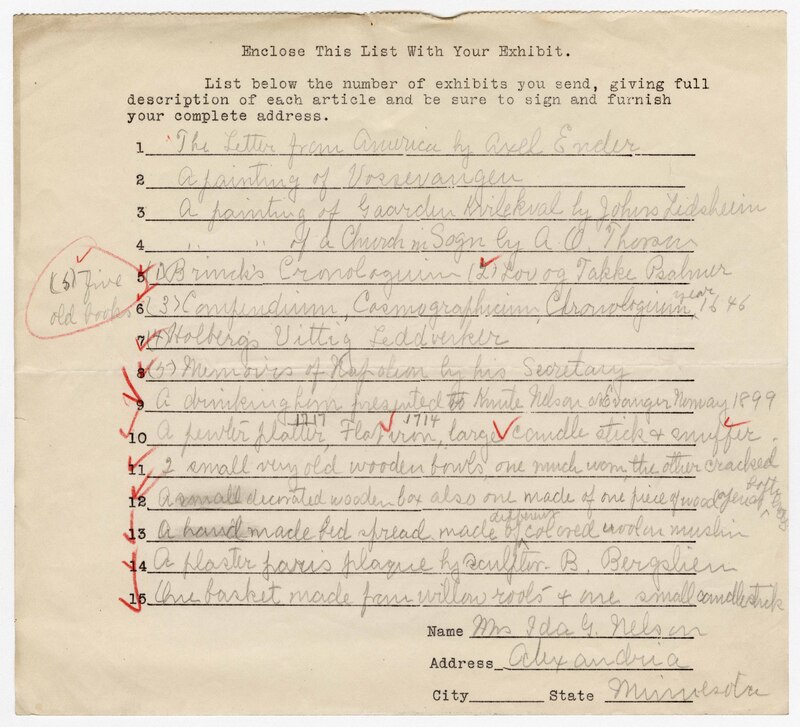 Enclose This List With Your Exhibit.
List below the number of exhibits you send, giving full
description of each article and be sure to sign and furnish
your complete address.
1 The Letter from America by Axel Ender
2 A painting of Vossevangen
3 A painting of Gaarden Kvilekval by Johns Lidsheim
4 " " of a Church in Sogn by A. O. Thorsen
(5) five
old books
5 (1) Brinck's Cronologium (2) Lov og Takke Psalmer
6 (3) Compendium, Cosmographicum, Chronologium, year 1646
7 (4) Holbergs Vittig Leddverker
8 (5) Memoirs of Napoleon by his Secretary
9 A drinking horn presented to Knute Nelson Norway 1899
1717 1714
10 A pewter platter, Flat iron, large candle stick & snuffer.
11 2 small very old wooden bowls, one much worn, the other cracked
12 A small decorated wooden box also one made of one piece of wood
13 A hand made bed spread made of different colored woolen muslin
14 A plaster paris plaque by sculptor B. Bergslien
15 One basket made from willow roots & one small candlestick
Name Mrs Ida G. Nelson
Address Alexandria
City State Minnesota